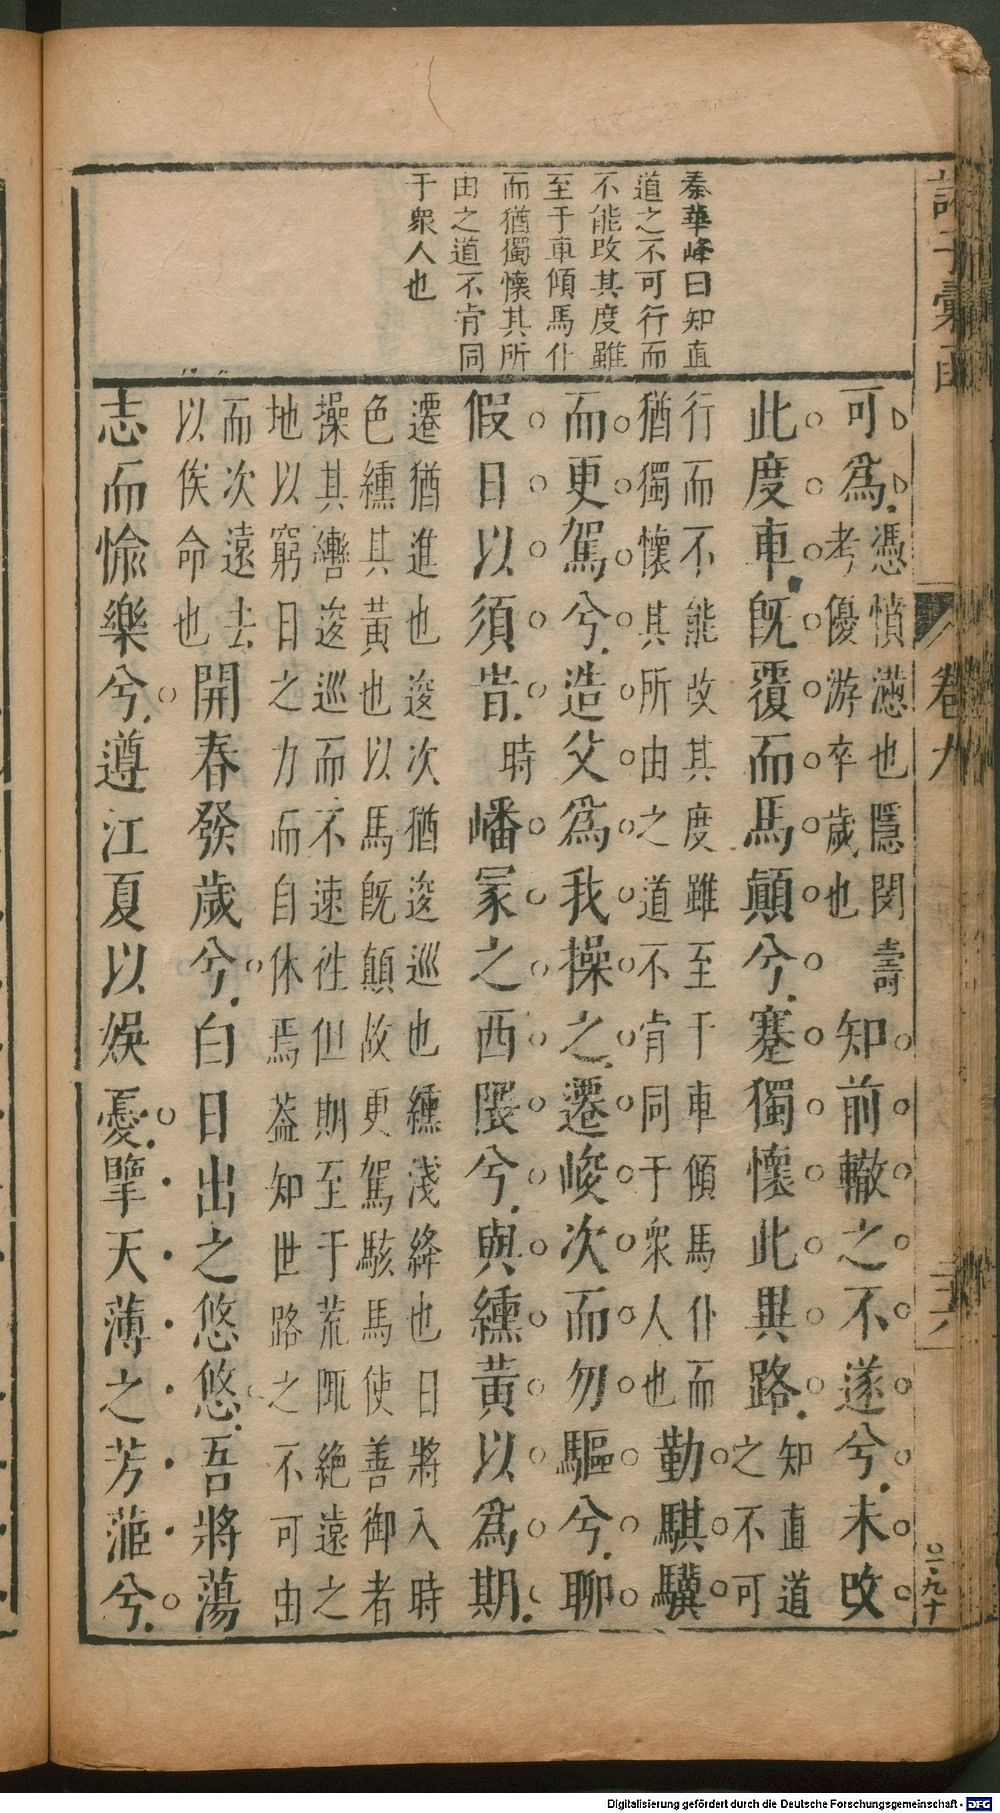 秦華峰曰知直
道之不可行而
不能改其度雖
至于車傾馬仆
而猶獨懷其所
由之道不肯同
于衆人也
諸子彙函
卷九
可為憑憤懣也隱閔壽考優游卒歲也知前轍之不遂兮未改
此度車旣覆而馬顛兮蹇獨懷此異路知直道之不可
行而不能改其度雖至于車傾馬仆而猶獨懷其所由之道不肯同于衆人也勤騏驥
而更駕兮造父為我操之遷峻次而勿驅兮聊
假日以須旹時嶓冢之西隈兮與纁黃以為期
遷猶進也逡次猶逡巡也纁淺絳也日將入時
色纁其黃也以馬旣顛故更駕駭馬使善御者
操其轡逡巡而不速徃但期至于荒陬絶遠之
地以窮日之力而自休焉葢知世路之不可由
而次遠去以俟命也開春發歲兮白日出之悠悠吾將蕩
志而愉樂兮遵江夏以娛憂擥天薄之芳茝兮
〇一九十
Digitalisierung gefördert durch die Deutsche Forschungsgemeinschaft - DFG